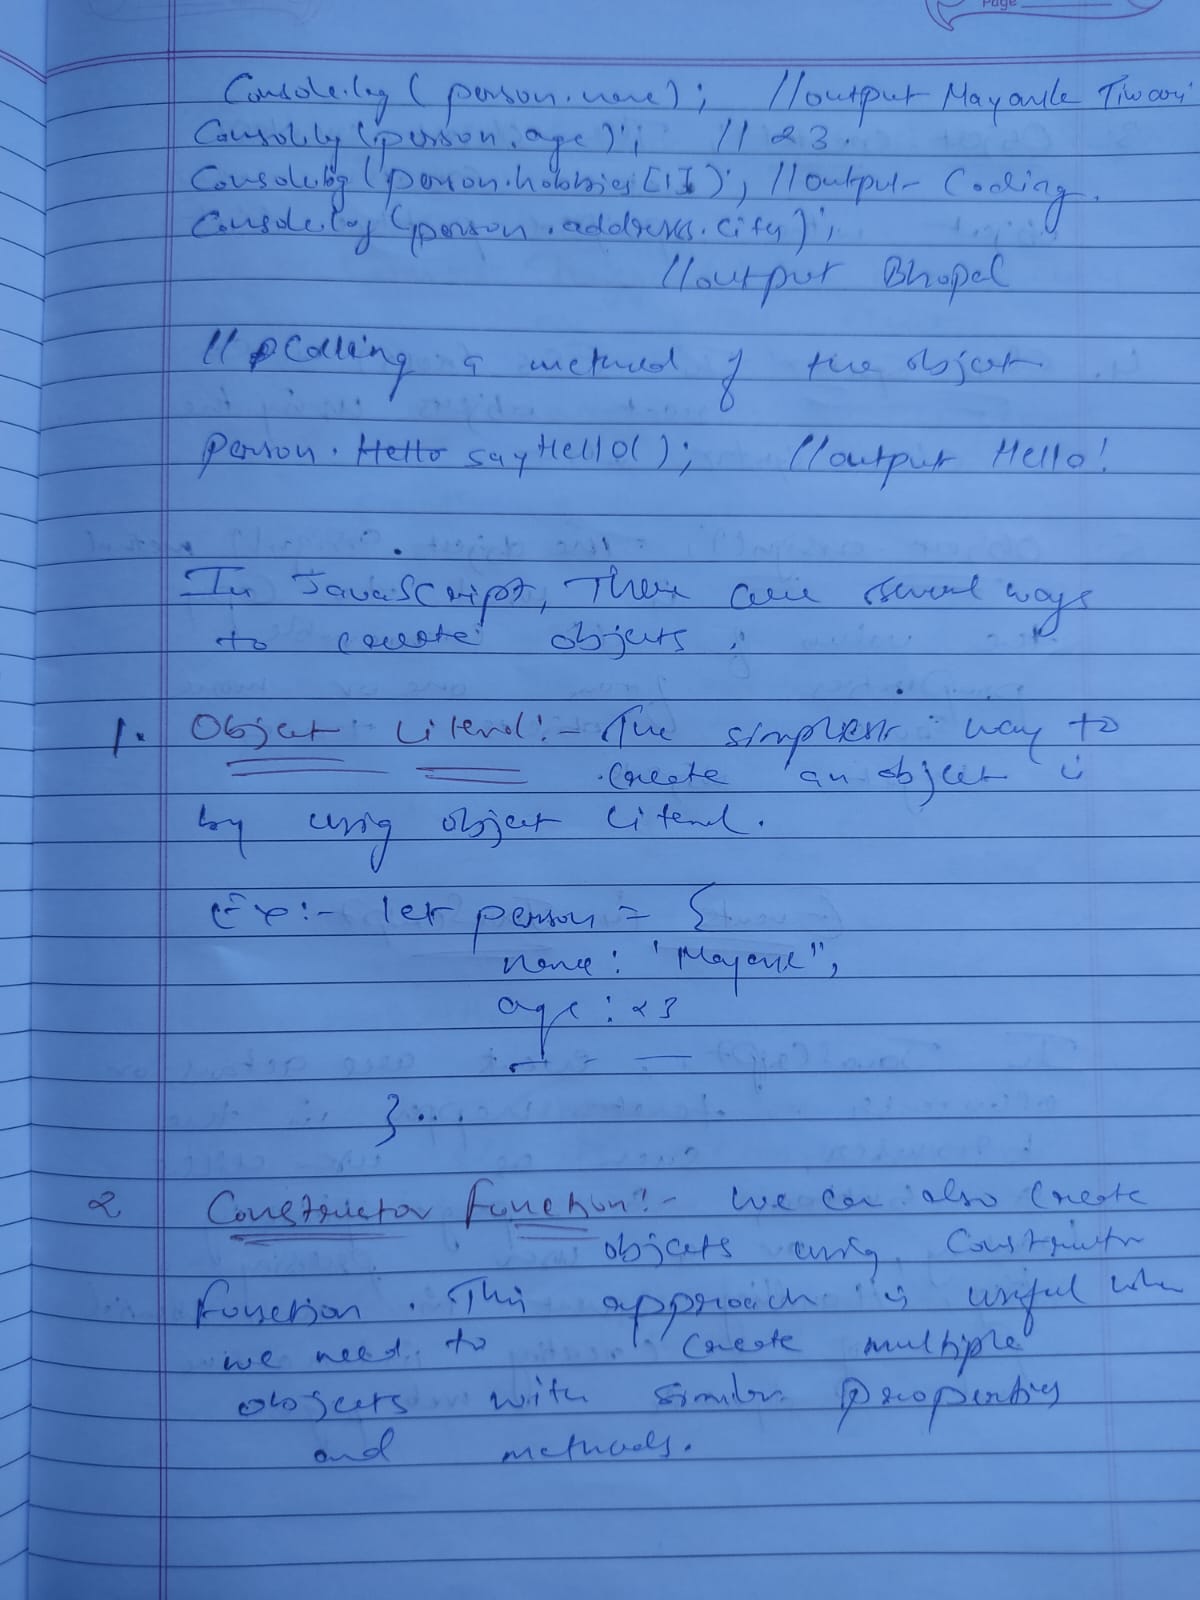 Page
Console.log ( person.name); //output Mayank Tiwari
Console.log (person.age); // 23.
Console.log (person.hobbies[1]); //output- Coding.
Console.log (person.address.city);
//output Bhopal
// Calling a method of the object
person. sayHello(); //output Hello!
In JavaScript, There are several ways
to create objects.
1. Object Literal:- The simplest way to
create an object is
by using object literal.
Ex:- let person = {
name: "Mayank",
age: 23
}...
2 Constructor Function:- We can also create
objects using Constructor
function. This approach is useful when
we need to create multiple
objects with similar properties
and methods.